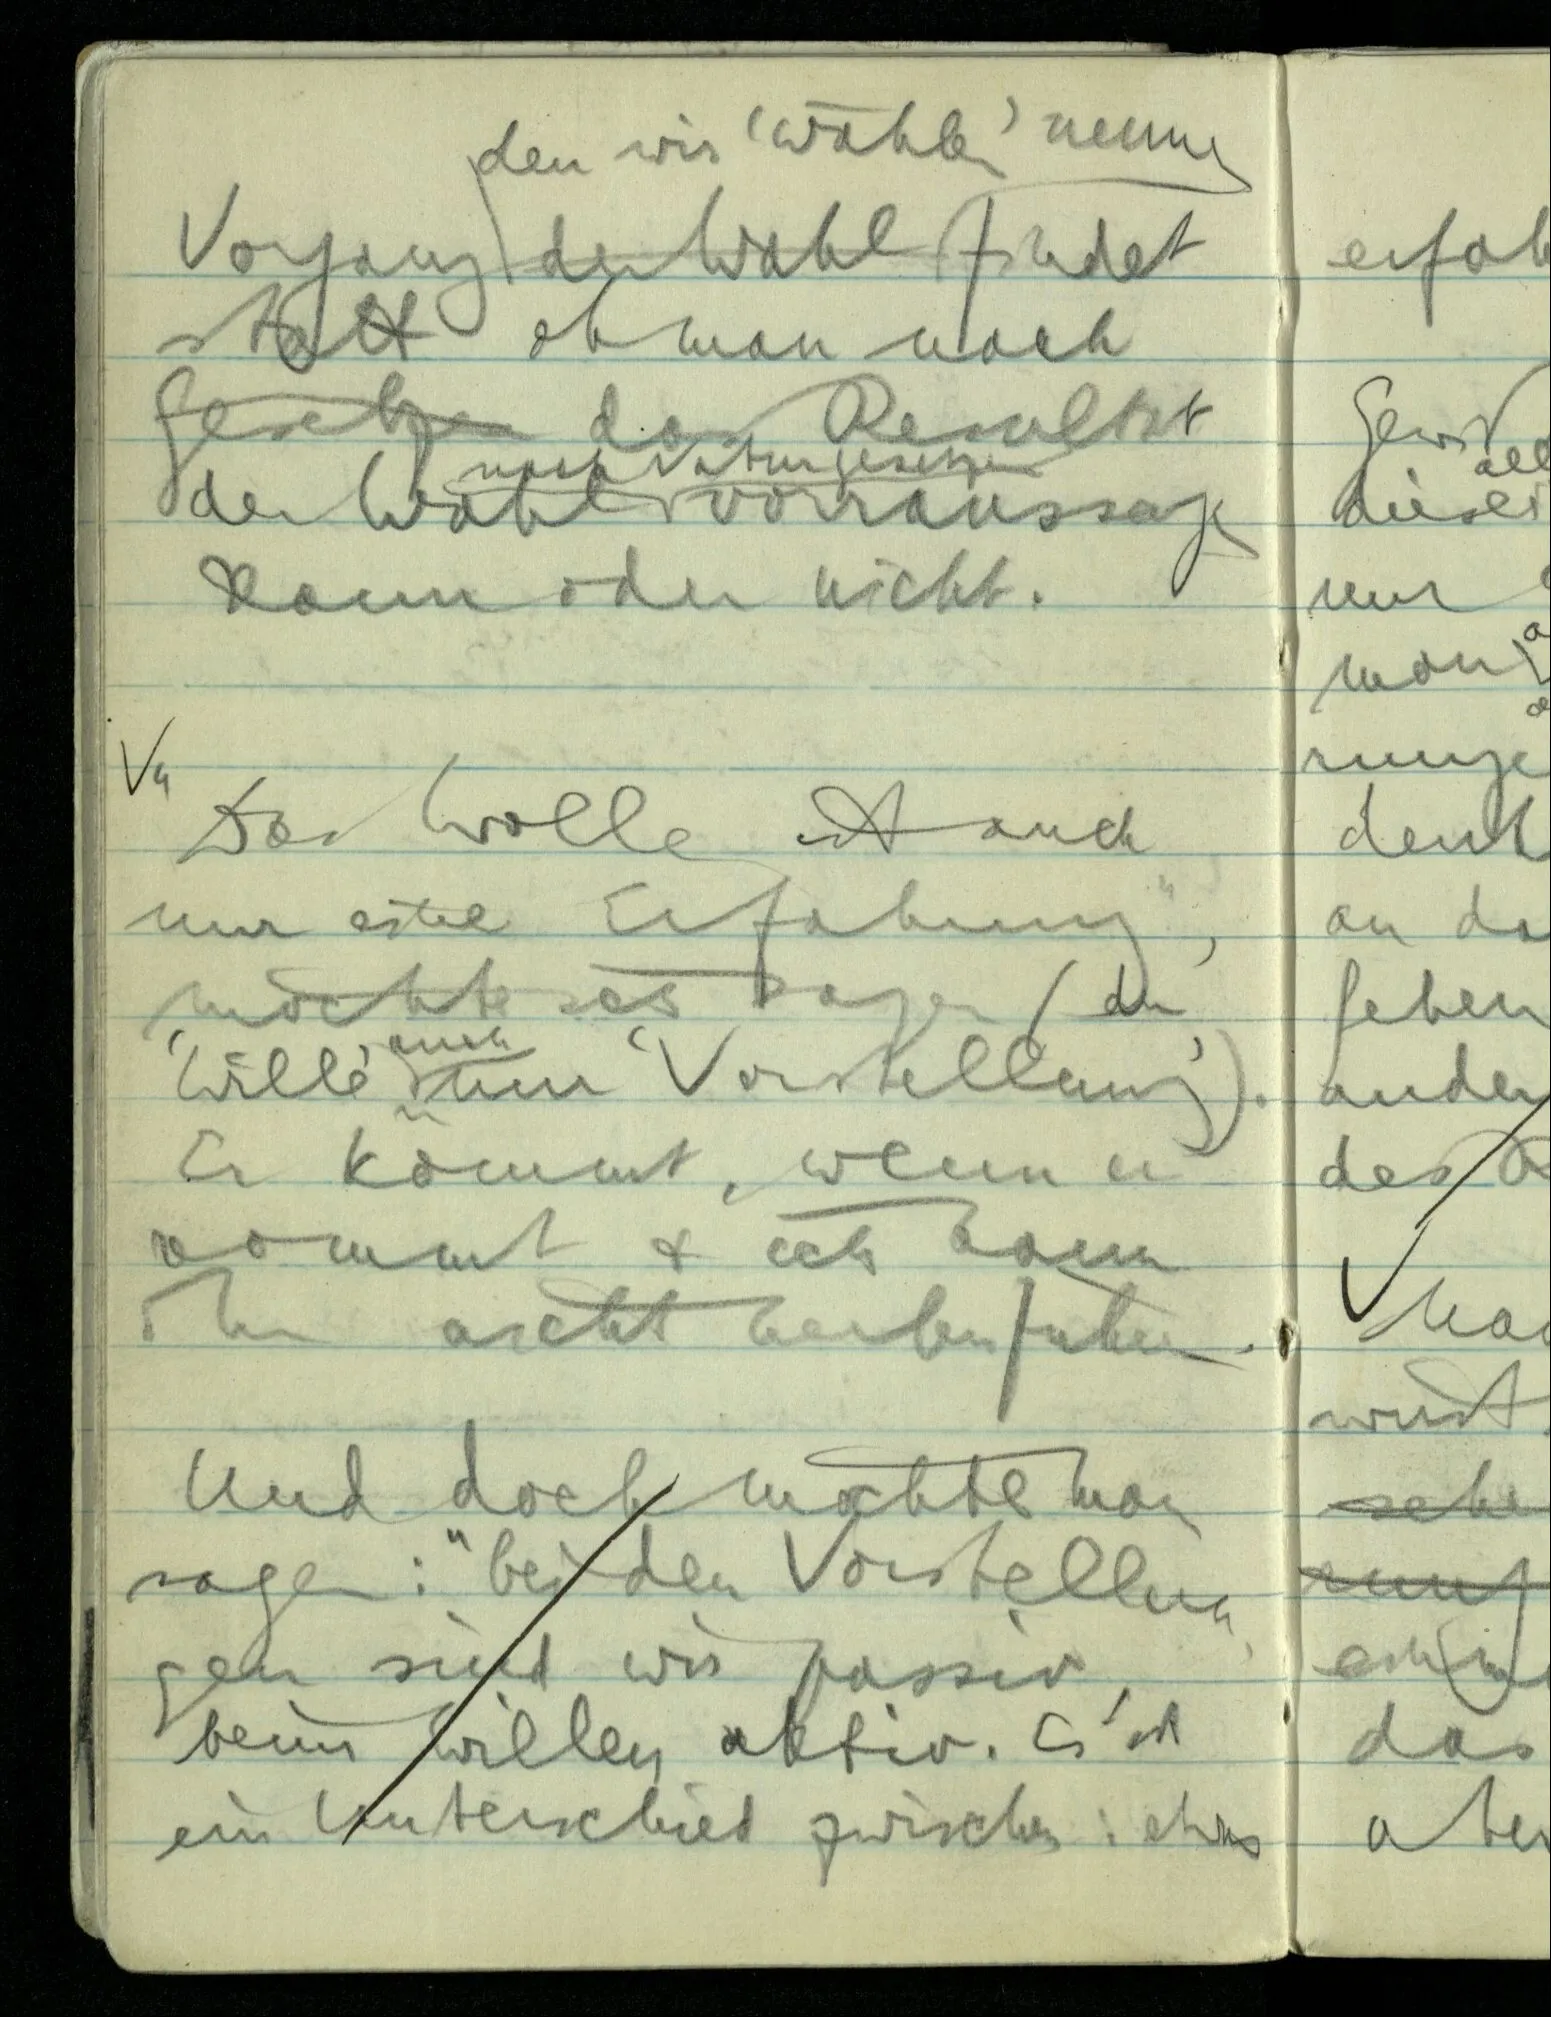 den wir 'wählen' nennen
Vorgang der Wahl findet
statt ob man nach
Gesetzen das Resultat
nach Naturgesetzen
der Wahl vorraussagen
kann oder nicht.
V "
Das Wollen ist auch
nur eine Erfahrung",
möchte ich sagen (der
auch
'Wille' nur 'Vorstellung').
Er kommt, wenn er
kommt & ich kann
ihn nicht herbeiführen.
Und doch möchte man
sagen: "bei den Vorstellun
gen sind wir passiv,
beim Willen aktiv. Es ist
ein Unterschied zwischen: etwas
erfah
Gewiß
all
dieser
nur
man
runge
denk
an da
geben
ander
des
V
wirst
sehe
das
aber